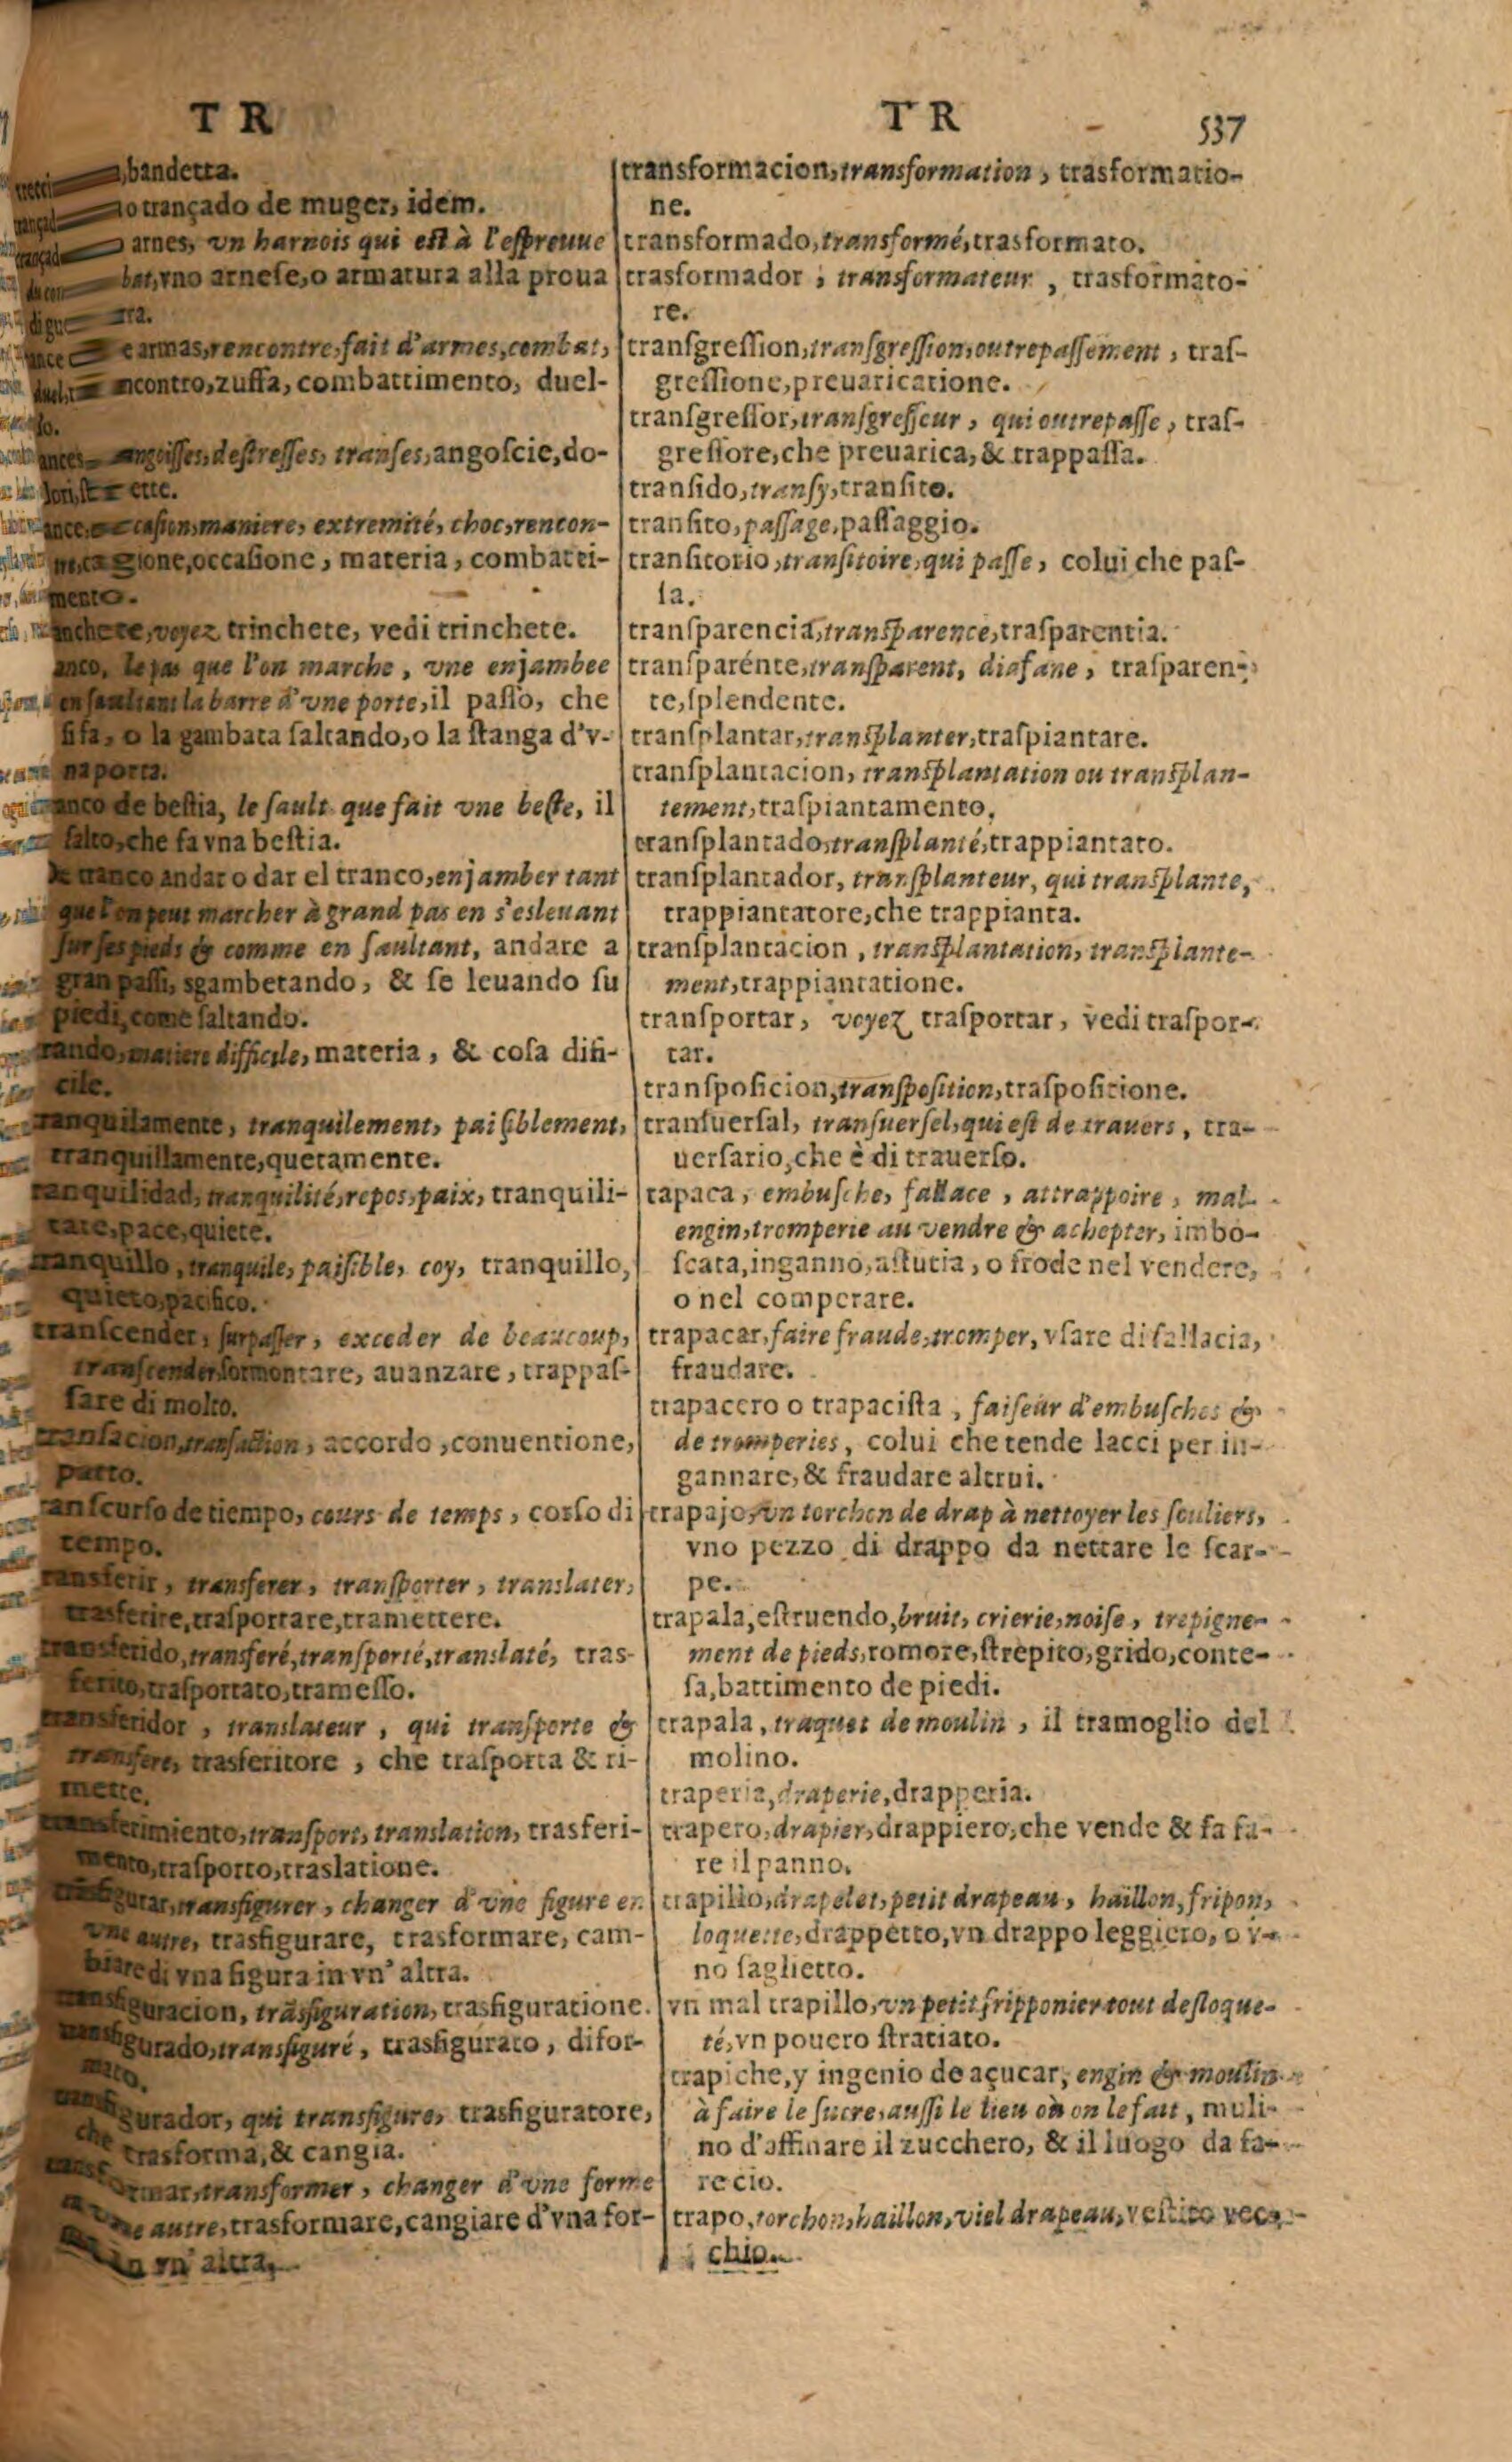 TR
TR
537
bandetta.
o trançado de muger, idem.
arnes, vn harnois qui est à l'espreuue
vno arnese, o armatura alla proua
armas, rencontre, fait d'armes, combat,
incontro, zuffa, combattimento, duel-
lo.
angoisses, destresses, transes, angoscie, do-
maniere, extremité, choc, rencon-
occasione, materia, combatti-
mento.
voyez trinchete, vedi trinchete.
le pas que l'on marche, vne enjambee
en saultant la barre d'vne porte, il passo, che
si fa, o la gambata saltando, o la stanga d'v-
na porta.
de bestia, le sault que fait vne beste, il
salto, che fa vna bestia.
de tranco andar o dar el tranco, enjamber tant
que l'on peut marcher à grand pas en s'esleuant
sur ses pieds & comme en saultant, andare a
gran passi, sgambetando, & se leuando su
piedi, come saltando.
matiere difficile, materia, & cosa difi-
cile.
tranquilamente, tranquilement, paisiblement,
tranquillamente, quetamente.
tranquilidad, tranquilité, repos, paix, tranquili-
tate, pace, quiete.
tranquillo, tranquile, paisible, coy, tranquillo,
quieto, pacifico.
transcender, surpasser, exceder de beaucoup,
transcender sormontare, auanzare, trappas-
sare di molto.
transacion, transaction, accordo, conuentione,
patto.
transcurso de tiempo, cours de temps, corso di
tempo.
transferir, transferer, transporter, translater,
trasferire, trasportare, tramettere.
transferido, transferé, transporté, translaté, tras-
ferito, trasportato, tramesso.
transferidor, translateur, qui transporte &
transfere, trasferitore, che trasporta & ri-
mette.
transferimiento, transport, translation, trasferi-
mento, trasporto, traslatione.
transfigurar, transfigurer, changer d'vne figure en
vne autre, trasfigurare, trasformare, cam-
biare di vna figura in vn' altra.
transfiguracion, trãsfiguration, trasfiguratione.
transfigurado, transfiguré, trasfigurato, difor-
mato.
transfigurador, qui transfigure, trasfiguratore,
che trasforma, & cangia.
transformer, changer d'vne forme
autre, trasformare, cangiare d'vna for-
in vn' altra,
transformacion, transformation, trasformatio-
ne.
transformado, transformé, trasformato.
trasformador, transformateur, trasformato-
re.
transgression, transgression, outrepassement, tras-
gressione, preuaricatione.
transgressor, transgresseur, qui outrepasse, tras-
gressore, che preuarica, & trappassa.
transido, transy, transito.
transito, passage, passaggio.
transitorio, transitoire, qui passe, colui che pas-
sa.
transparencia, transparence, trasparentia.
transparénte, transparent, diafane, trasparen-
te, splendente.
transplantar, transplanter, traspiantare.
transplantacion, transplantation ou transplan-
tement, traspiantamento,
transplantado, transplanté, trappiantato.
transplantador, transplanteur, qui transplante,
trappiantatore, che trappianta.
transplantacion, transplantation, transplante-
ment, trappiantatione.
transportar, voyez trasportar, vedi traspor-
tar.
transposicion, transposition, traspositione.
transuersal, transuersel, qui est de trauers, tra-
uersario, che è di trauerso.
tapaca, embusche, fallace, attrappoire, mal
engin, tromperie au vendre & achepter, imbo-
scata, inganno, astutia, o frode nel vendere,
o nel comperare.
trapacar, faire fraude, tromper, vsare di fallacia,
fraudare.
trapacero o trapacista, faiseur d'embusches &
de tromperies, colui che tende lacci per in-
gannare, & fraudare altrui.
trapajo, vn torchon de drap à nettoyer les souliers,
vno pezzo di drappo da nettare le scar-
pe.
trapala, estruendo, bruit, crierie, noise, trepigne-
ment de pieds, romore, strepito, grido, conte-
sa, battimento de piedi.
trapala, traquet de moulin, il tramoglio del
molino.
traperia, draperie, drapperia.
trapero, drapier, drappiero, che vende & fa fa-
re il panno.
trapillo, drapelet, petit drapeau, haillon, fripon,
loquette, drappetto, vn drappo leggiero, o v-
no saglietto.
vn mal trapillo, vn petit fripponier tout desloque-
té, vn pouero stratiato.
trapiche, y ingenio de açucar, engin & moulin
à faire le sucre, aussi le lieu où on le fait, muli-
no d'affinare il zucchero, & il luogo da fa-
re cio.
trapo, torchon, haillon, viel drapeau, vestito vec-
chio.